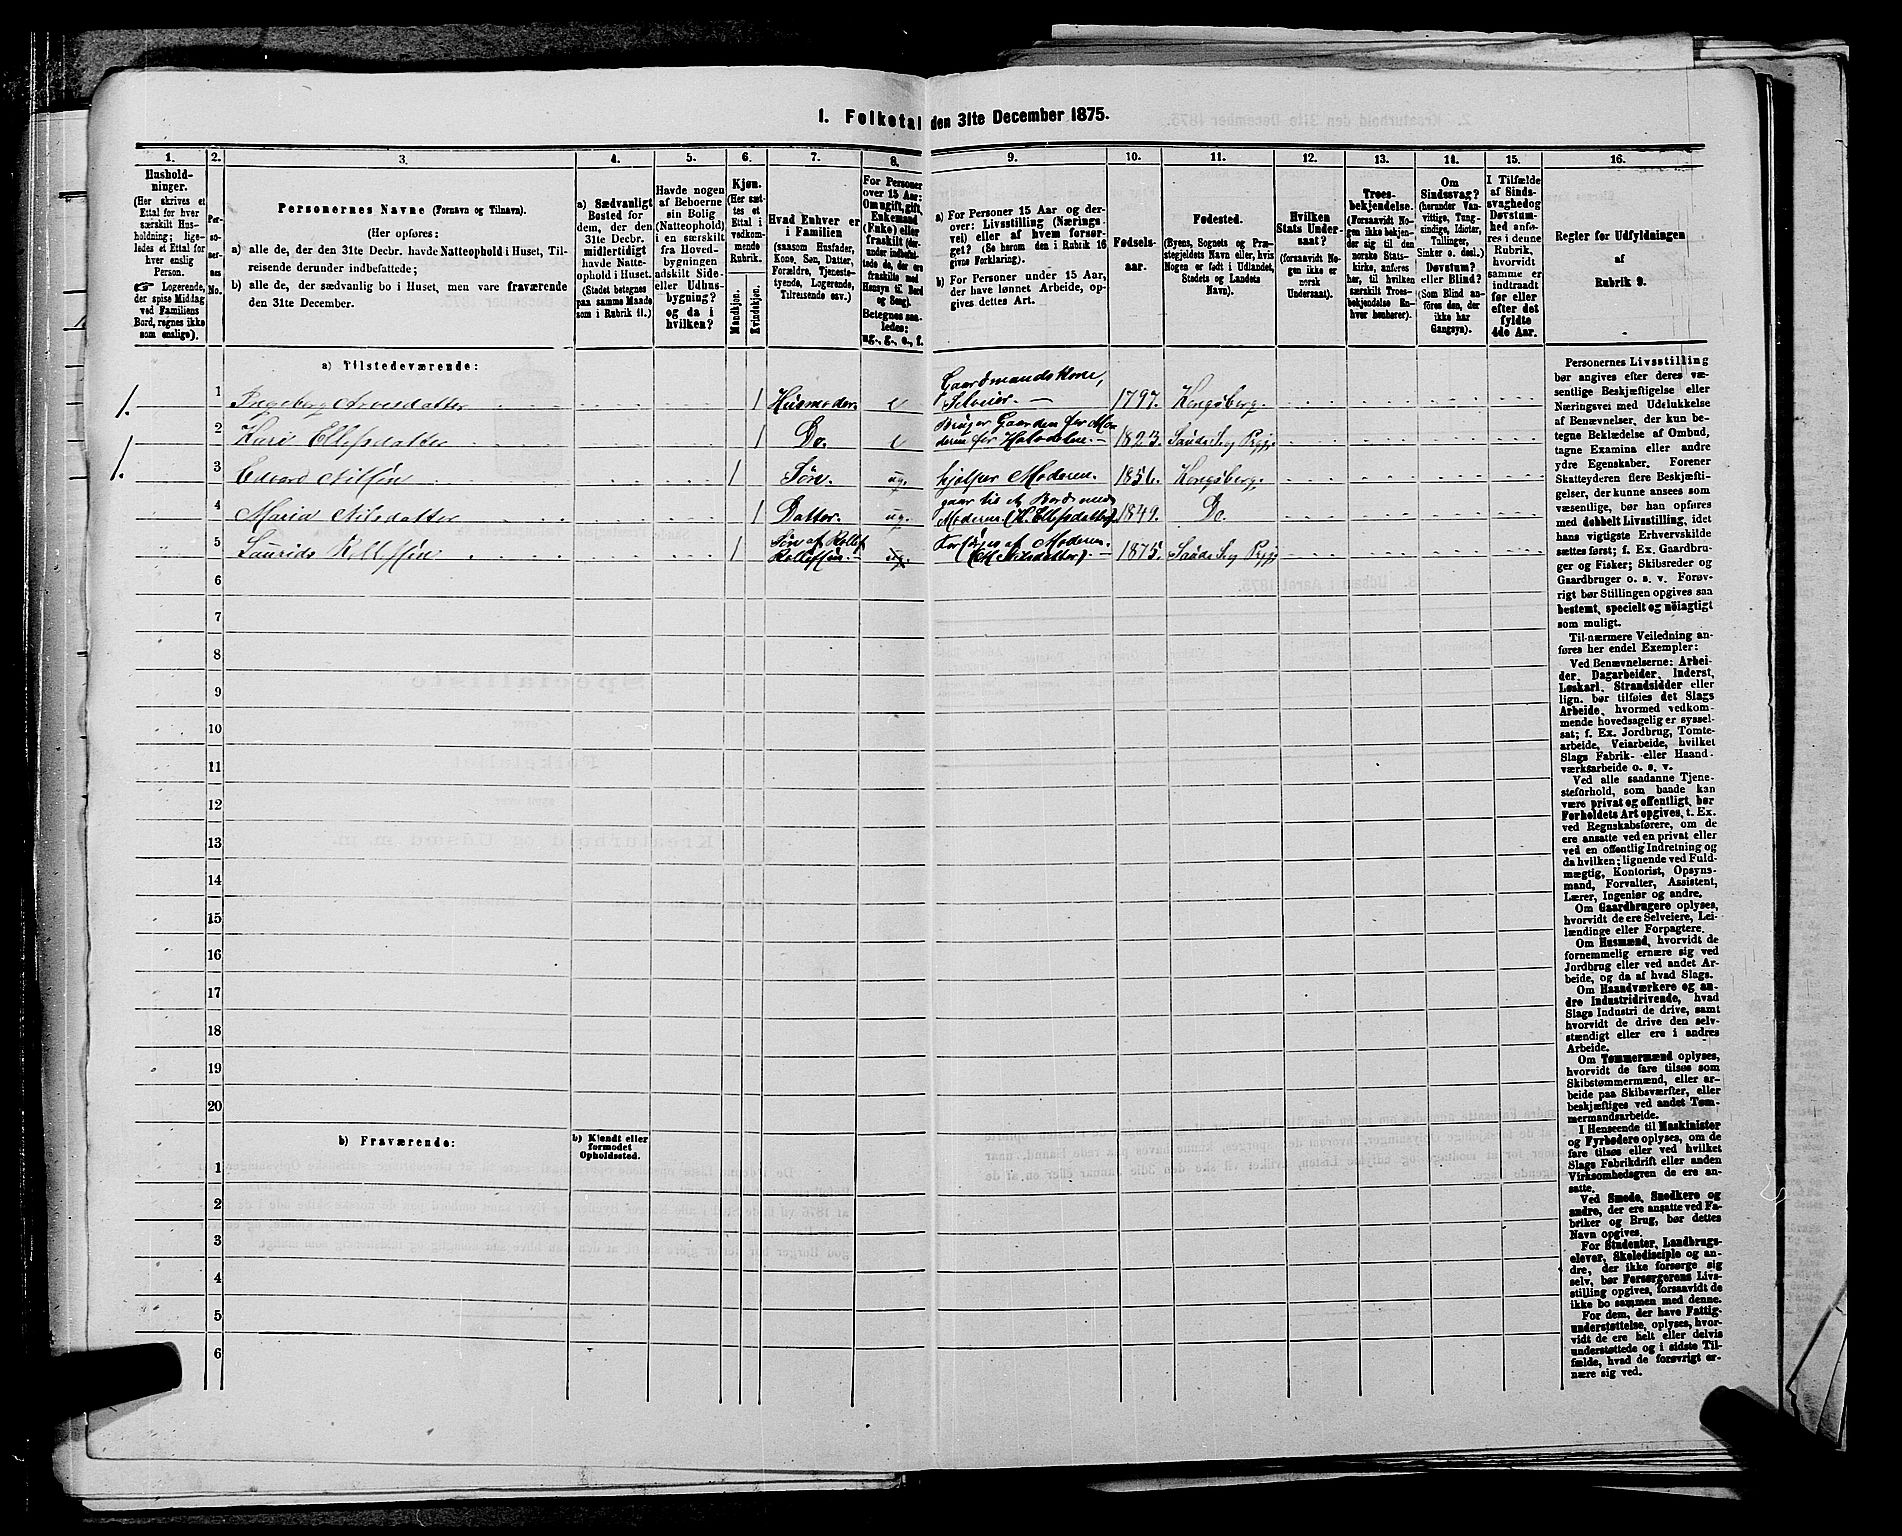 1. Folketal den 31te December 1875.
1.
Hushold-
ninger.
(Her skrives et
Ettal for hver
særskilt Hus-
holdning; lige-
ledes et Ettal for
hver enslig
Person.
☞ Logerende,
der spise Middag
ved Familiens
Bord, regnes ikke
som enslige).
2.
Per-
so-
ner-
nes
No.
3.
Personernes Navne (Fornavn og Tilnavn).
(Her opføres:
a) alle de, der den 31te Decbr. havde Natteophold i Huset, Til-
reisende derunder indbefattede;
b) alle de, der sædvanlig bo i Huset, men vare fraværende
den 31te December.
4.
a) Sædvanligt
Bosted for
dem, der den
31te Decbr.
midlertidigt
havde Natte-
ophold i Huset.
(Stedet betegnes
paa samme Maade
som i Rubrik 11.)
5.
Havde nogen
af Beboerne
sin Bolig
(Natteophold)
i en særskilt
fra Hoved-
bygningen
adskilt Side-
eller Udhus-
bygning?
og da i
hvilken?
6.
Kjøn.
(Her sæt-
tes et
Ettal i
vedkom-
mende
Rubrik.
Mandkjøn.
Kvindekjøn.
7.
Hvad Enhver er
i Familien
(saasom Husfader,
Kone, Søn, Datter,
Forældre, Tjeneste-
tyende, Logerende,
Tilreisende osv.)
8.
For Personer
over 15 Aar:
Om ugift, gift,
Enkemand
(Enke) eller
fraskilt (der-
under indbefat-
tede de, der ere
fraskilte med
Hensyn til Bord
og Seng).
Betegnes saa-
ledes:
ug., g., e., f.
9.
a) For Personer 15 Aar og der-
over: Livsstilling (Nærings-
vei) eller af hvem forsør-
get? (Se herom den i Rubrik 16
givne Forklaring).
b) For Personer under 15 Aar,
der have lønnet Arbeide, op-
gives dettes Art.
10.
Fødsels-
aar.
11.
Fødested.
(Byens, Sognets og Præ-
stegjeldets Navn eller, hvis
Nogen er født i Udlandet,
Stedets og Landets
Navn).
12.
Hvilken
Stats Under-
saat?
(forsaavidt No-
gen ikke er
norsk
Undersaat).
13.
Troes-
bekjendelse.
(Forsaavidt No-
gen ikke bekjen-
der sig til den
norske Stats-
kirke, anføres
her, til hvilken
særskilt Troes-
bekjendelse En-
hver henhører).
14.
Om
Sindssvag?
(herunder Van-
vittige, Tung-
sindige, Idioter,
Tullinger,
Sinker o. desl.)
Døvstum?
eller Blind?
(Som Blind an-
føres den, der
ikke har
Gangsyn).
15.
I Tilfælde
af Sinds-
svaghed og
Døvstum-
hed anfø-
res i denne
Rubrik,
hvorvidt
samme er
indtraadt
før eller
efter det
fyldte
4de Aar.
16.
Regler for Udfyldningen
af
Rubrik 9.
a) Tilstedeværende:
1. 1 Ingeborg Arvesdatter 1 Husmoder e Gaardmandskone, Selveier — 1797. Kongsberg.
2 Kari Ellefsdatter 1 Do. e Bruger Gaarden før Mo- deren før Halvdelen — 1823. Saude Sog Pgj.
1. 3 Edvard Nilsøn 1 Søn. ug. hjælper Moderen. 1856. Kongsberg.
4 Maria Nilsdatter 1 Datter. ug. gaar til et Bord med Moderen. (K. Ellefsdatter). 1849. Do.
5 Laurids Rollefsøn 1 Søn af Rollef Rollefsøn. ug. Forsørges af Moderen (M. Nilsdatter) — 1875. Saude Sog Pgj.
6
7
8
9
10
11
12
13
14
15
16
17
18
19
20
b) Fraværende:
b) Kjendt eller
formodet
Opholdssted.
1
2
3
4
5
6
Personernes Livsstilling
bør angives efter deres væ-
sentlige Beskjæftigelse eller
Næringsvei med Udelukkelse
af Benævnelser, der kun be-
tegne Beklædelse af Ombud,
tagne Examina eller andre
ydre Egenskaber. Forener
Skatteyderen flere Beskjæfti-
gelser, der kunne ansees som
væsentlige, bør han opføres
med dobbelt Livsstilling, idet
hans vigtigste Erhvervskilde
sættes først; f. Ex. Gaardbru-
ger og Fisker; Skibsreder og
Gaardbruger o. s. v. Forøv-
rigt bør Stillingen opgives saa
bestemt, specielt og nøiagtigt
som muligt.
Til nærmere Veiledning an-
føres her endel Exempler:
Ved Benævnelserne: Arbei-
der, Dagarbeider, Inderst,
Løskarl, Strandsidder eller
lign. bør tilføies det Slags
Arbeide, hvormed vedkom-
mende hovedsagelig er syssel-
sat; f. Ex. Jordbrug, Tomte-
arbeide, Veiarbeide, hvilket
Slags Fabrik- eller Haand-
værksarbeide o. s. v.
Ved alle saadanne Tjene-
steforhold, som baade kan
være privat og offentligt, bør
Forholdets Art opgives, t. Ex.
ved Regnskabsførere, om de
ere ansatte ved en privat eller
ved en offentlig Indretning og
da hvilken; lignende ved Fuld-
mægtig, Kontorist, Opsyns-
mand, Forvalter, Assistent,
Lærer, Ingeniør og andre.
Om Gaardbrugere oplyses,
hvorvidt de ere Selveiere, Lei-
lændinge eller Forpagtere.
Om Husmænd, hvorvidt de
fornemmelig ernære sig ved
Jordbrug eller ved andet Ar-
beide, og da af hvad Slags.
Om Haandværkere og an-
dre Industridrivende, hvad
Slags Industri de drive, samt
hvorvidt de drive den selv-
stændigt eller ere i andres
Arbeide.
Om Tømmermænd oplyses,
hvorvidt de fare tilsøs som
Skibstømmermænd, eller ar-
beide paa Skibsværfter, eller
beskjæftiges ved andet Tøm-
mermandsarbeide.
I Henseende til Maskinister
og Fyrbødere oplyses, om de
fare tilsøs eller ved hvilket
Slags Fabrikdrift eller anden
Virksomhedsgren de ere an-
satte.
Ved Smede, Snedkere og
andre, der ere ansatte ved Fa-
briker og Brug, bør dettes
Navn opgives.
For Studenter, Landbrugs-
elever, Skoledisciple og an-
dre, der ikke forsørge sig
selv, bør Forsørgerens Livs-
stilling opgives, forsaavidt de
ikke bo sammen med denne.
For dem, der have Fattig-
understøttelse, oplyses, hvor-
vidt de ere helt eller delvis
understøttede og i sidste Til-
fælde, hvad de forøvrigt er-
nære sig ved.